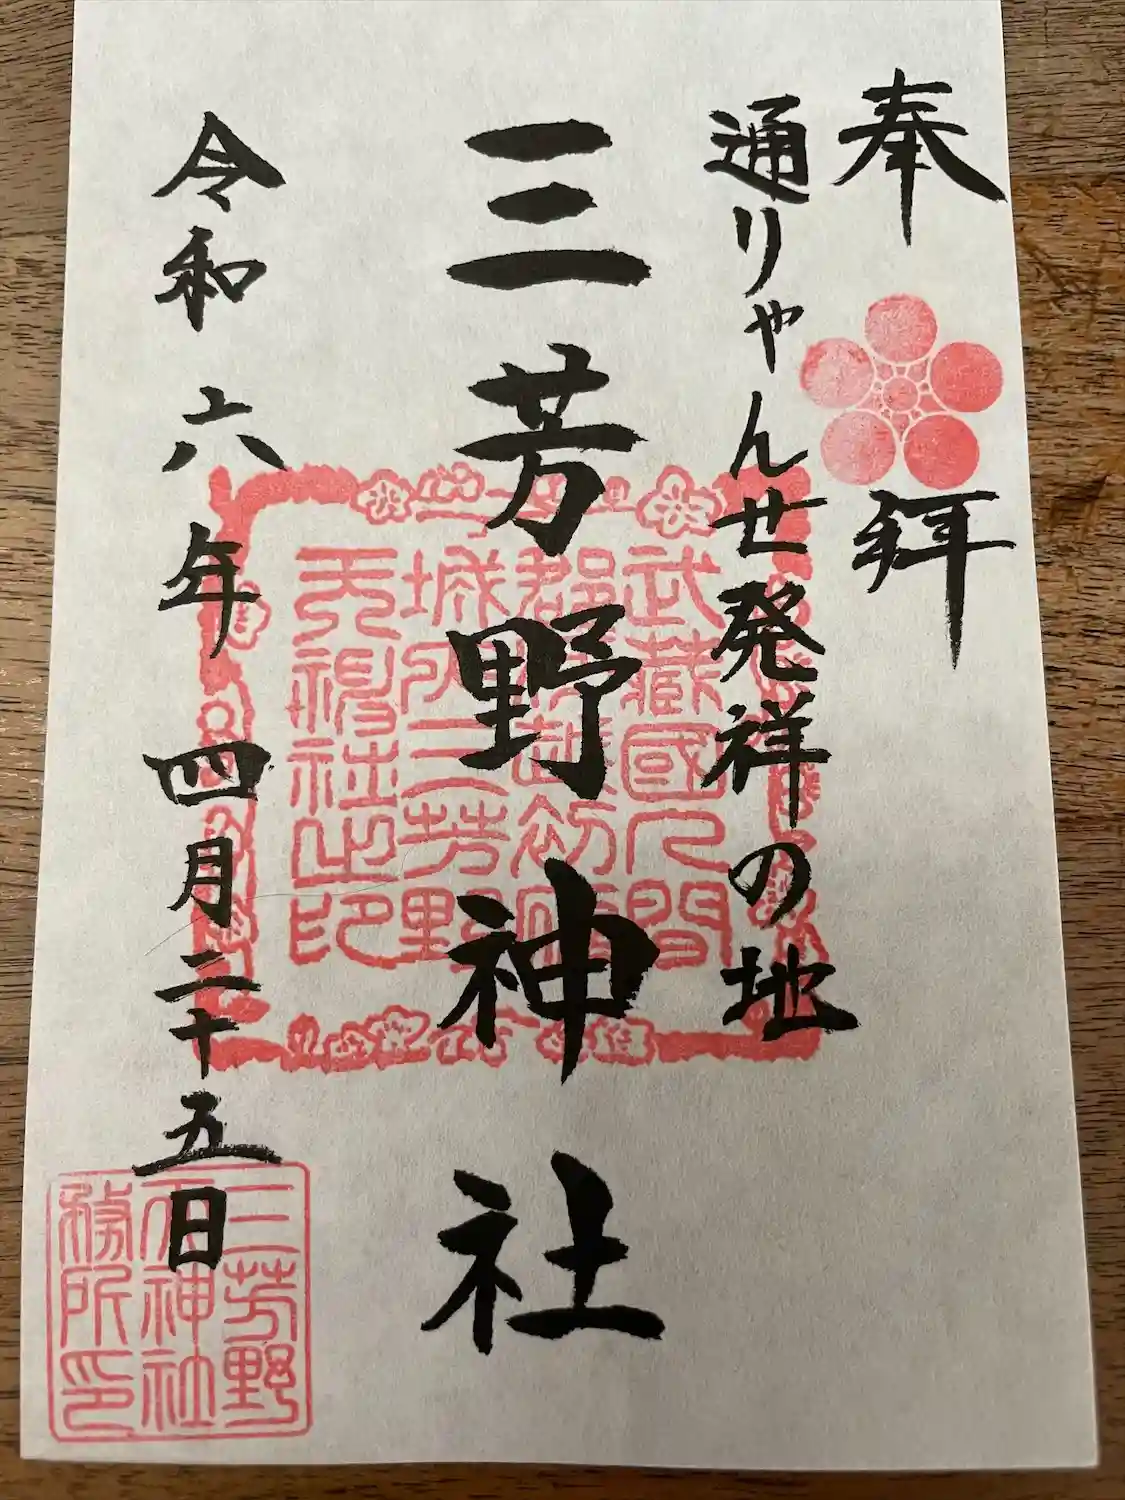 奉拝
通りゃんせ発祥の地
三芳野神社
令和六年四月二十五日
武蔵國入間
城内三芳野
天神社之印
三芳野
天神社
務所印